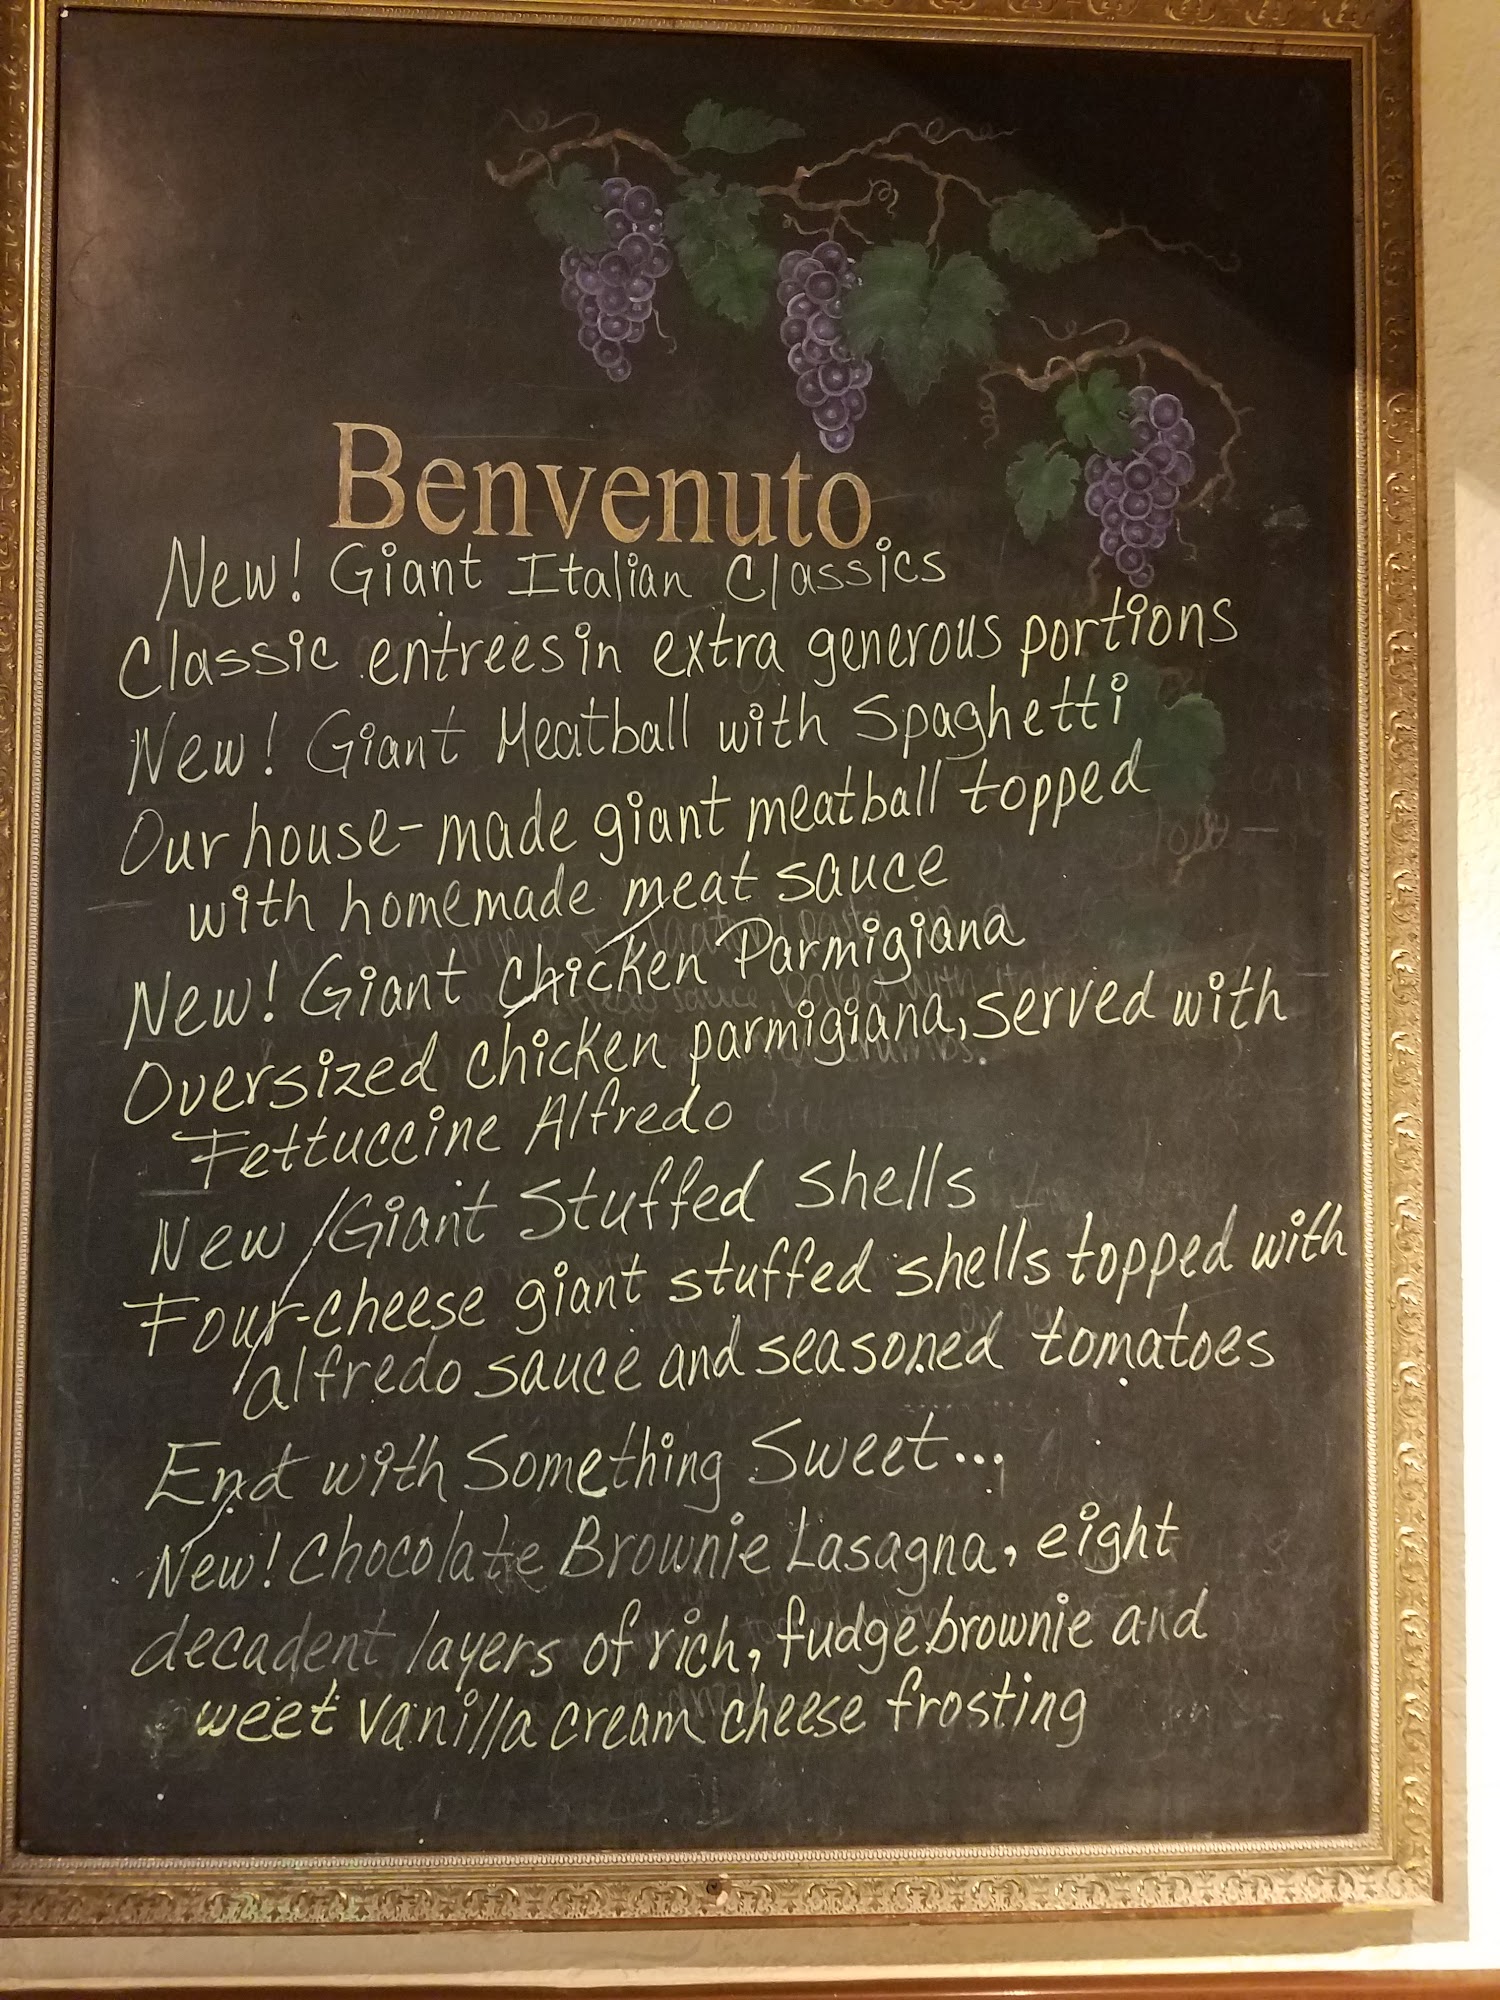 Benvenuto
New! Giant Italian Classics
Classic entrees in extra generous portions
New! Giant Meatball with Spaghetti
Our house-made giant meatball topped
with homemade meat sauce
New! Giant Chicken Parmigiana
Oversized chicken parmigiana, served with
Fettuccine Alfredo
New! Giant Stuffed Shells
Four-cheese giant stuffed shells topped with
alfredo sauce and seasoned tomatoes
End with Something Sweet...
New! Chocolate Brownie Lasagna, eight
decadent layers of rich, fudge brownie and
weet Vanilla cream cheese frosting